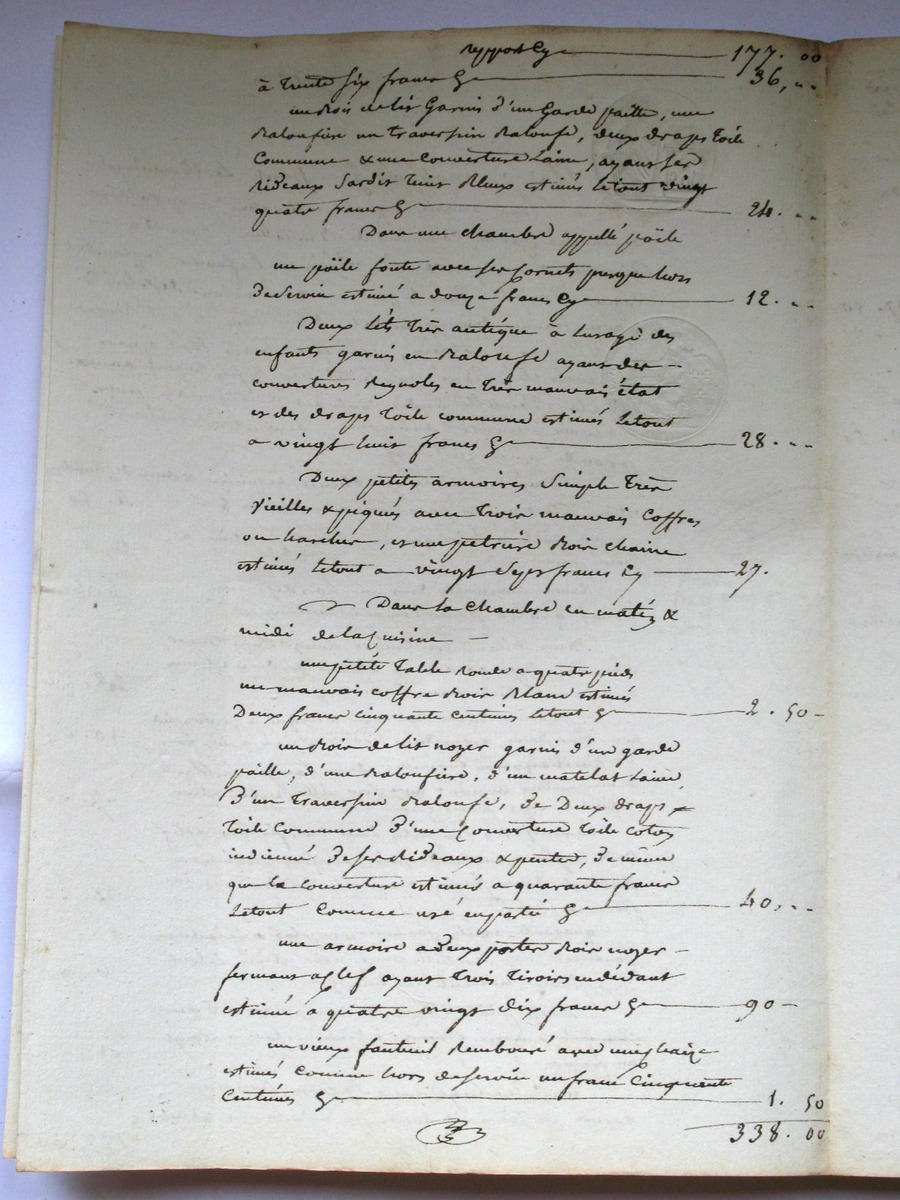 rapport Cy 177. 00
à trente six francs Cy 36,
un bois de lit Garni d'un Garde paille, une
Baloufiere un traversin Baloufe, deux draps toile
Commune & une Couverture Laine, ayant ses
Rideaux Sardis unis Bleux estimés letout vingt
quatre francs Cy 24.
Dans une chambre appellé poële
un poële fonte avec ses Cornets presque hors
de Servin estimé a douze francs Cy 12.
Deux Lits très antique à lusage des
enfants garnis en Baloufe ayant des
couvertures en très mauvais état
et des draps toile commune estimés letout
a vingt huit francs Cy 28.
Deux petites armoires Simple très
vieilles & piqués avec trois mauvais Coffres
ou harches, et une petriere bois chaine
estimés letout a vingt Sept francs Cy 27.
Dans la Chambre en matin &
midi de la Cuisine
une petite table Ronde a quatre pieds
un mauvais coffre Bois Blanc estimés
Deux francs cinquante centimes letout Cy 2. 50
un Bois de lit noyer garni d'un garde
paille, d'une Baloufiere, d'un matelat Laine
d'un traversin Baloufe, de Deux draps
toile Commune d'une Couverture toile coton
indienne de ses Rideaux & pente, de même
que la couverture estimés a quarante francs
Letout Comme usé en partie Cy 40,
une armoire a deux portes Bois noyer
fermant a Clef ayant trois tiroirs en dédant
estimé à quatre vingt dix francs Cy 90
un vieux fauteuil Rembouré avec une chaize
estimés comme hors de servin un franc Cinquante
Centimes Cy 1. 50
338. 00